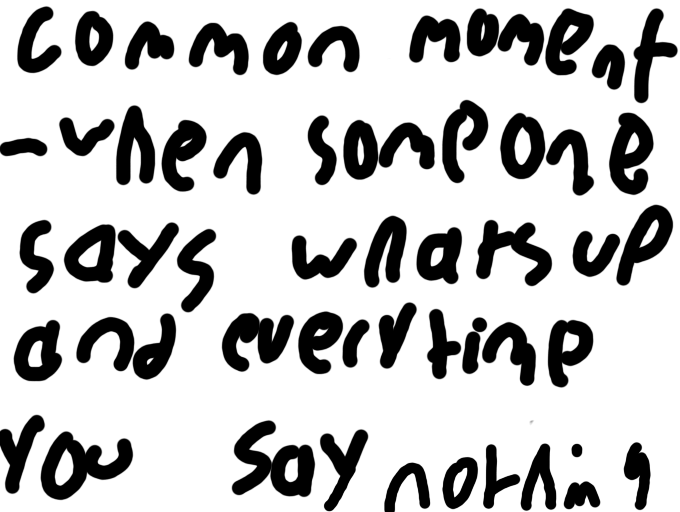 common moment
-when someone
says whats up
and everytime
you say nothing